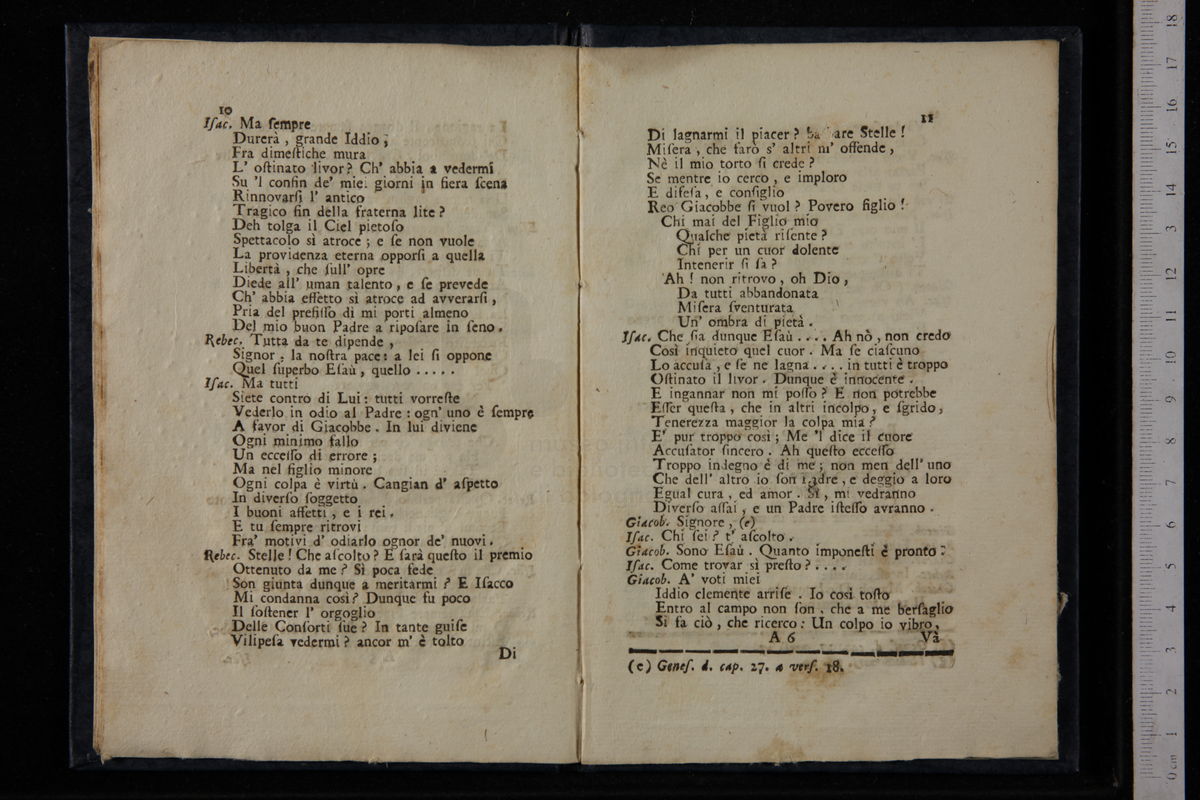 10
Iſac. Ma ſempre
Durerà , grande Iddio ,
Fra dimeſtiche mura
L' oſtinato livor? Ch' abbia a vedermi
Su 'l confin de' miei giorni in fiera ſcena
Rinnovarſi l' antico
Tragico fin della fraterna lite ?
Deh tolga il Ciel pietoſo
Spettacolo sì atroce ; e ſe non vuole
La providenza eterna opporſi a quella
Libertà , che ſull' opre
Diede all' uman talento , e ſe prevede
Ch' abbia effetto sì atroce ad avverarſi ,
Pria del prefiſſo dì mi porti almeno
Del mio buon Padre a ripoſare in ſeno .
Rebec. Tutta da te dipende ,
Signor , la noſtra pace : a lei ſi oppone
Quel ſuperbo Eſaù , quello . . . . .
Iſac. Ma tutti
Siete contro di Lui : tutti vorreſte
Vederlo in odio al Padre : ogn' uno è ſempre
A favor di Giacobbe . In lui diviene
Ogni minimo fallo
Un ecceſſo di errore ;
Ma nel figlio minore
Ogni colpa è virtù . Cangian d' aſpetto
In diverſo ſoggetto
I buoni affetti , e i rei .
E tu ſempre ritrovi
Fra' motivi d' odiarlo ognor de' nuovi .
Rebec. Stelle ! Che aſcolto ? E ſarà queſto il premio
Ottenuto da me ? Sì poca fede
Son giunta dunque a meritarmi ? E Iſacco
Mi condanna così ? Dunque fu poco
Il ſoſtener l' orgoglio
Delle Conſorti ſue ? In tante guiſe
Vilipeſa vedermi ? ancor m' è tolto
Di
11
Di lagnarmi il piacer ? Stelle !
Miſera , che farò s' altri m' offende ,
Nè il mio torto ſi crede ?
Se mentre io cerco , e imploro
E difeſa , e conſiglio
Reo Giacobbe ſi vuol ? Povero figlio !
Chi mai del Figlio mio
Qualche pietà riſente ?
Chi per un cuor dolente
Intenerir ſi ſa ?
Ah ! non ritrovo , oh Dio ,
Da tutti abbandonata
Miſera ſventurata
Un' ombra di pietà .
Iſac. Che ſia dunque Eſaù . . . . Ah nò , non credo
Così inquieto quel cuor . Ma ſe ciaſcuno
Lo accuſa , e ſe ne lagna . . . . in tutti è troppo
Oſtinato il livor . Dunque è innocente .
E ingannar non mi poſſo ? E non potrebbe
Eſſer queſta , che in altri incolpo , e ſgrido ,
Tenerezza maggior la colpa mia ?
E' pur troppo così ; Me 'l dice il cuore
Accuſator ſincero . Ah queſto ecceſſo
Troppo indegno è di me ; non men dell' uno
Che dell' altro io ſon Padre , e deggio a loro
Egual cura , ed amor . Sì , mi vedranno
Diverſo aſſai , e un Padre iſteſſo avranno .
Giacob. Signore , (e)
Iſac. Chi ſei ? t' aſcolto .
Giacob. Sono Eſaù . Quanto imponeſti è pronto :
Iſac. Come trovar sì preſto ? . . . .
Giacob. A' voti miei
Iddio clemente arriſe . Io così toſto
Entro al campo non ſon , che a me berſaglio
Si fa ciò , che ricerco : Un colpo io vibro ,
A 6 Và
(e) Geneſ. d. cap. 27. a verſ. 18.